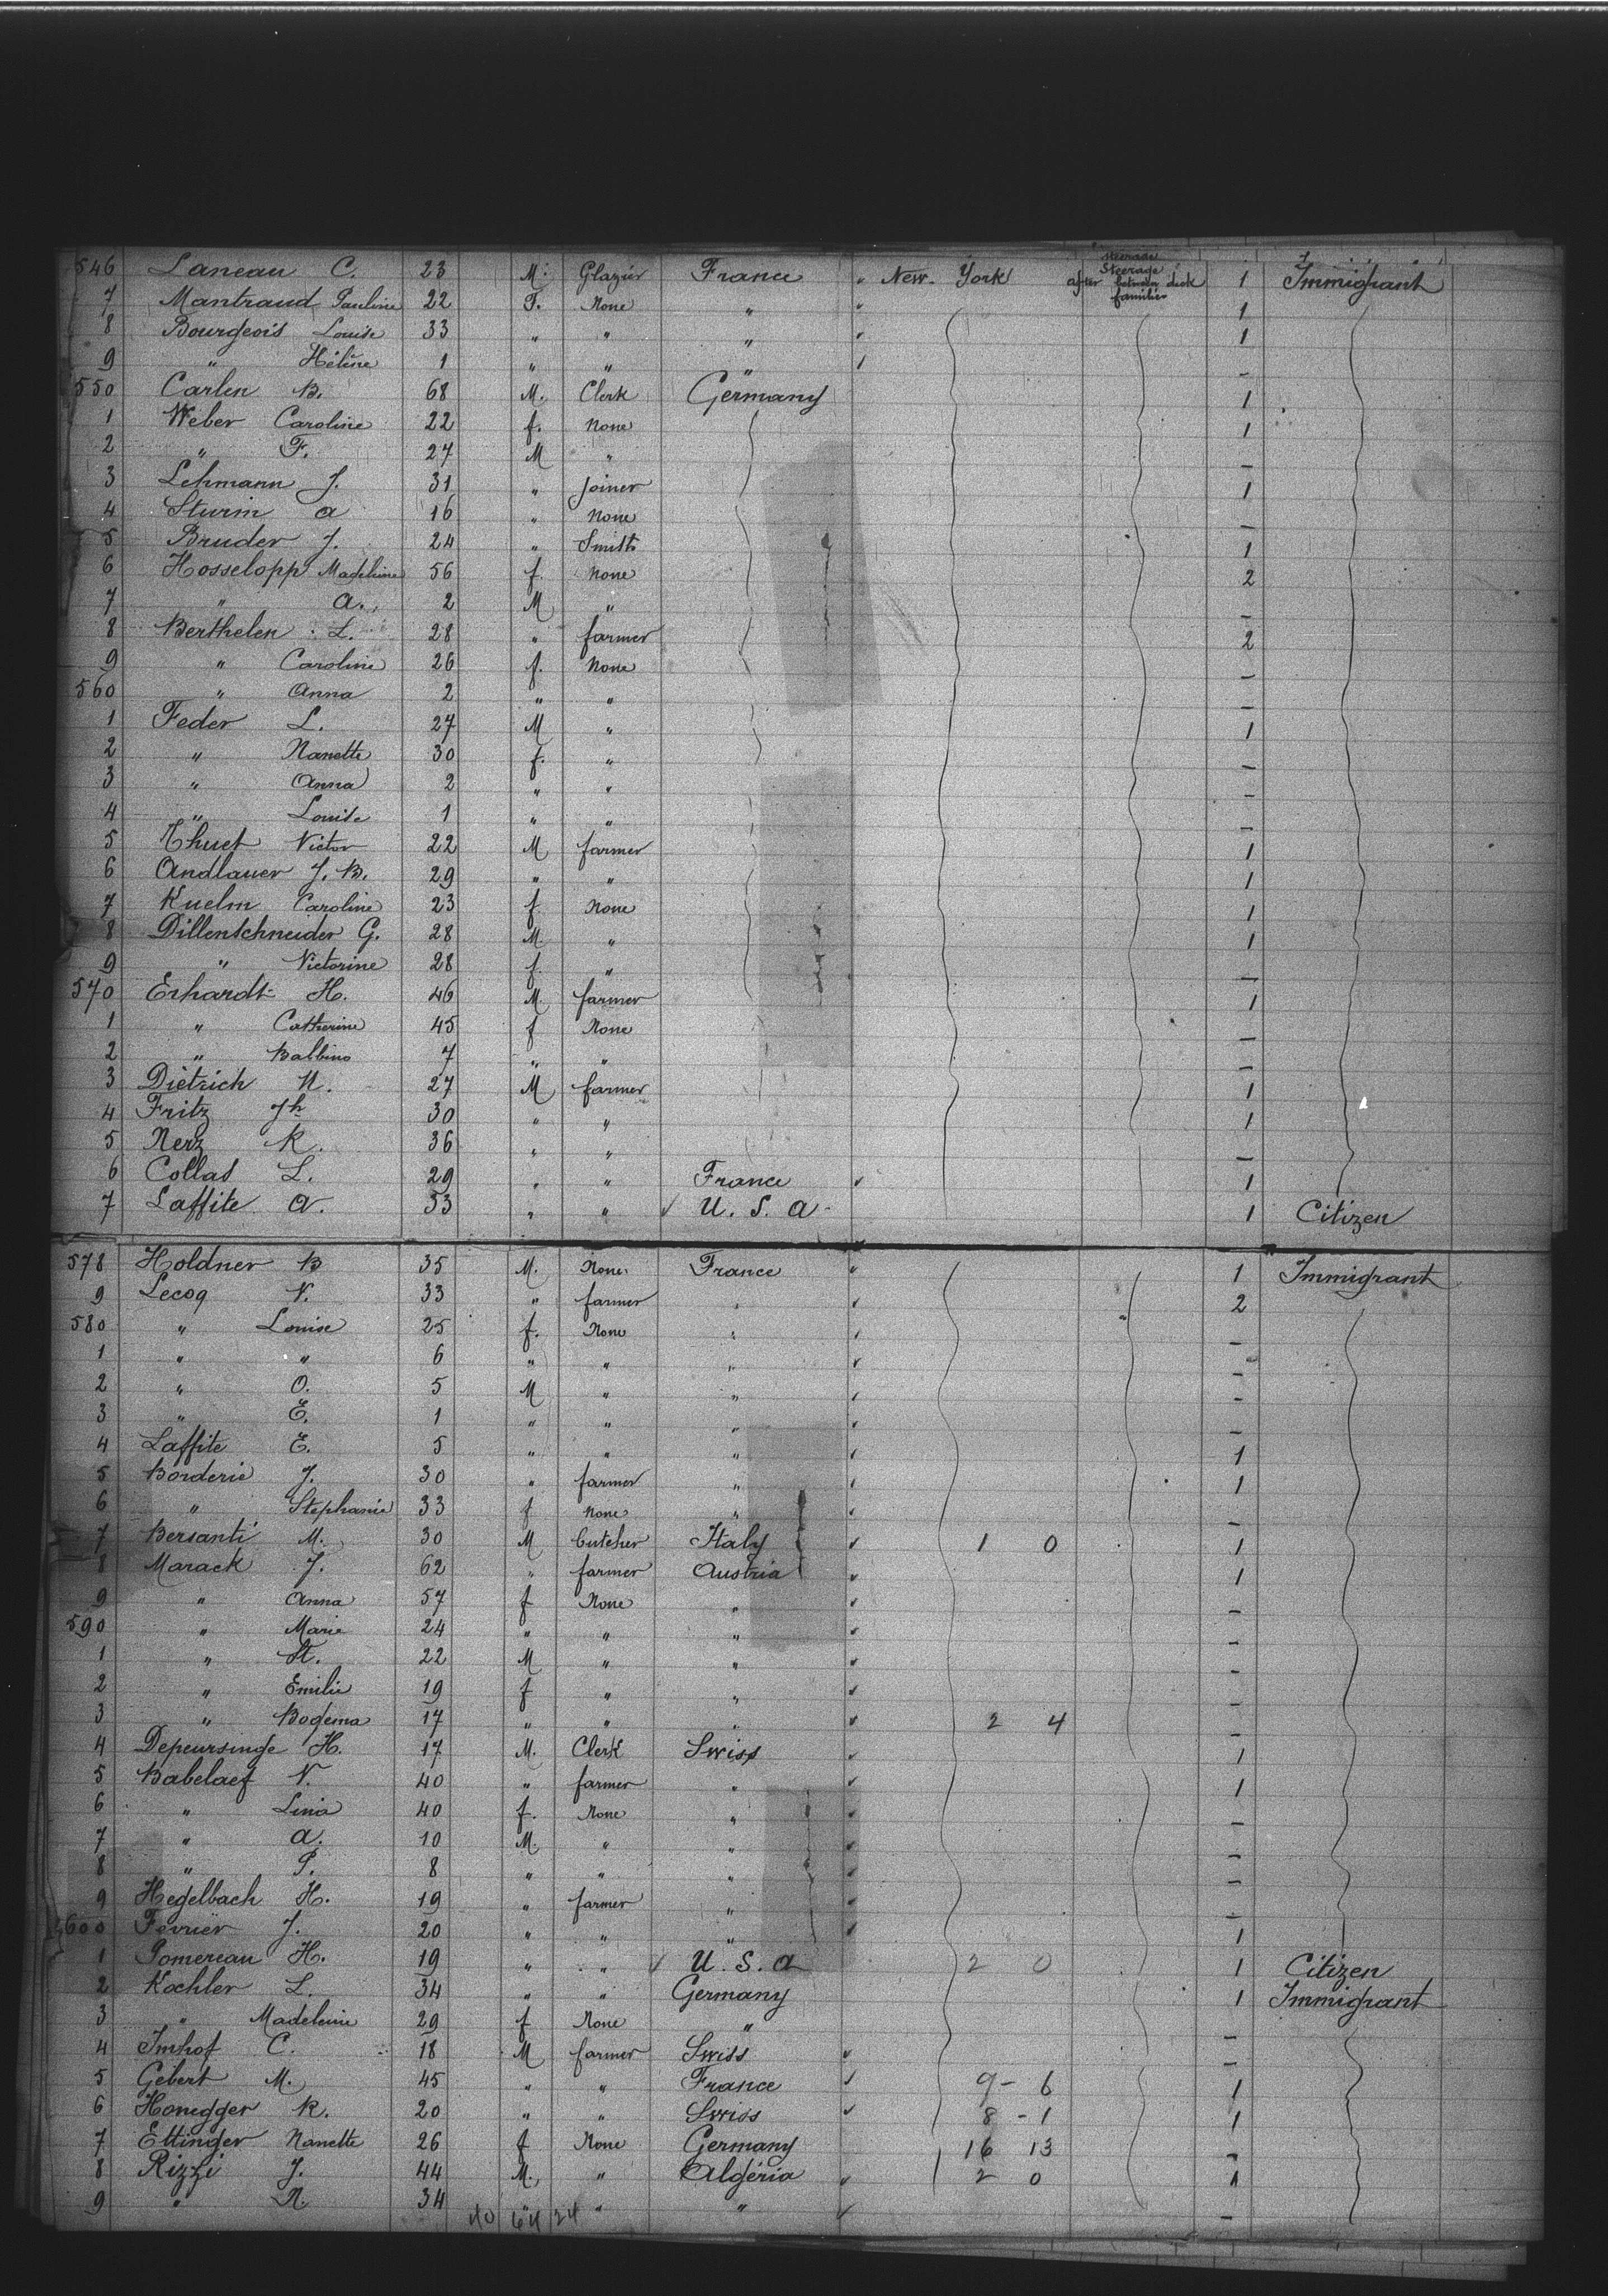 546 Laneau C. 23 M. Glazier France " New-York Steerage after between deck families 1 Immigrant
7 Mantraud Pauline 22 F. None " " 1
8 Bourgeois Louise 33 " " " " 1
9 " Hélène 1 " " " —
550 Carlen B. 68 M. Clerk Germany 1
1 Weber Caroline 22 f. None 1
2 " F. 27 M " —
3 Lehmann J. 31 " Joiner 1
4 Sturm A 16 " None —
5 Bruder J. 24 " Smith 1
6 Hosselopp Madeleine 56 f. None 2
7 " A. 2 M " —
8 Berthelen L. 28 " farmer 2
9 " Caroline 26 f. None —
560 " Anna 2 " " —
1 Feder L. 27 M " 1
2 " Nanette 30 f. " —
3 " Anna 2 " " —
4 " Louise 1 " " —
5 Thuet Victor 22 M farmer 1
6 Andlauer J. B. 29 " " 1
7 Kuelm Caroline 23 f. None 1
8 Dillenschneider G. 28 M. " 1
9 " Victorine 28 f. " —
570 Erhardt H. 46 M. farmer 1
1 " Catherine 45 f None —
2 " Balbino 7 " " —
3 Dietrich N. 27 M farmer 1
4 Fritz Jh 30 " " 1
5 Nerz K. 36 " " —
6 Collas L. 29 " " France 1
7 Laffite A. 53 " " U. S. A. 1 Citizen
578 Holdner B 35 M. None France 1 Immigrant
9 Lecoq V. 33 " farmer " 2
580 " Louise 25 f. None " —
1 " " 6 " " "
2 " O. 5 M " " —
3 " E. 1 " " " —
4 Laffite E. 5 " " " 1
5 Borderie J. 30 " farmer " 1
6 " Stephanie 33 f None " —
7 Bersanti M. 30 M butcher Italy 1 0 1
8 Marack J. 62 " farmer Austria 1
9 " Anna 57 f None " —
590 " Marie 24 " " " —
1 " St. 22 M " " —
2 " Emilie 19 f " " —
3 " Bogema 17 " " " 2 4 —
4 Depeursinge H. 17 M. Clerk Swiss 1
5 Babelaef V. 40 " farmer " 1
6 " Lina 40 f. None " —
7 " A. 10 M. " " —
8 " P. 8 " " " —
9 Hegelbach H. 19 " farmer " —
600 Fevrier J. 20 " " " 1
1 Pomereau H. 19 " " U. S. A 2 0 1 Citizen
2 Kochler L. 34 " " Germany 1 Immigrant
3 " Madeleine 29 f None " —
4 Imhof C. 18 M farmer Swiss —
5 Gebert M. 45 " " France 9 - 6 1
6 Honegger K. 20 " " Swiss 8 - 1 1
7 Ettinger Nanette 26 f None Germany 16 13 —
8 Rizzi J. 44 M. " Algeria 2 0 1
9 " N. 34 " " " —
40 64 24